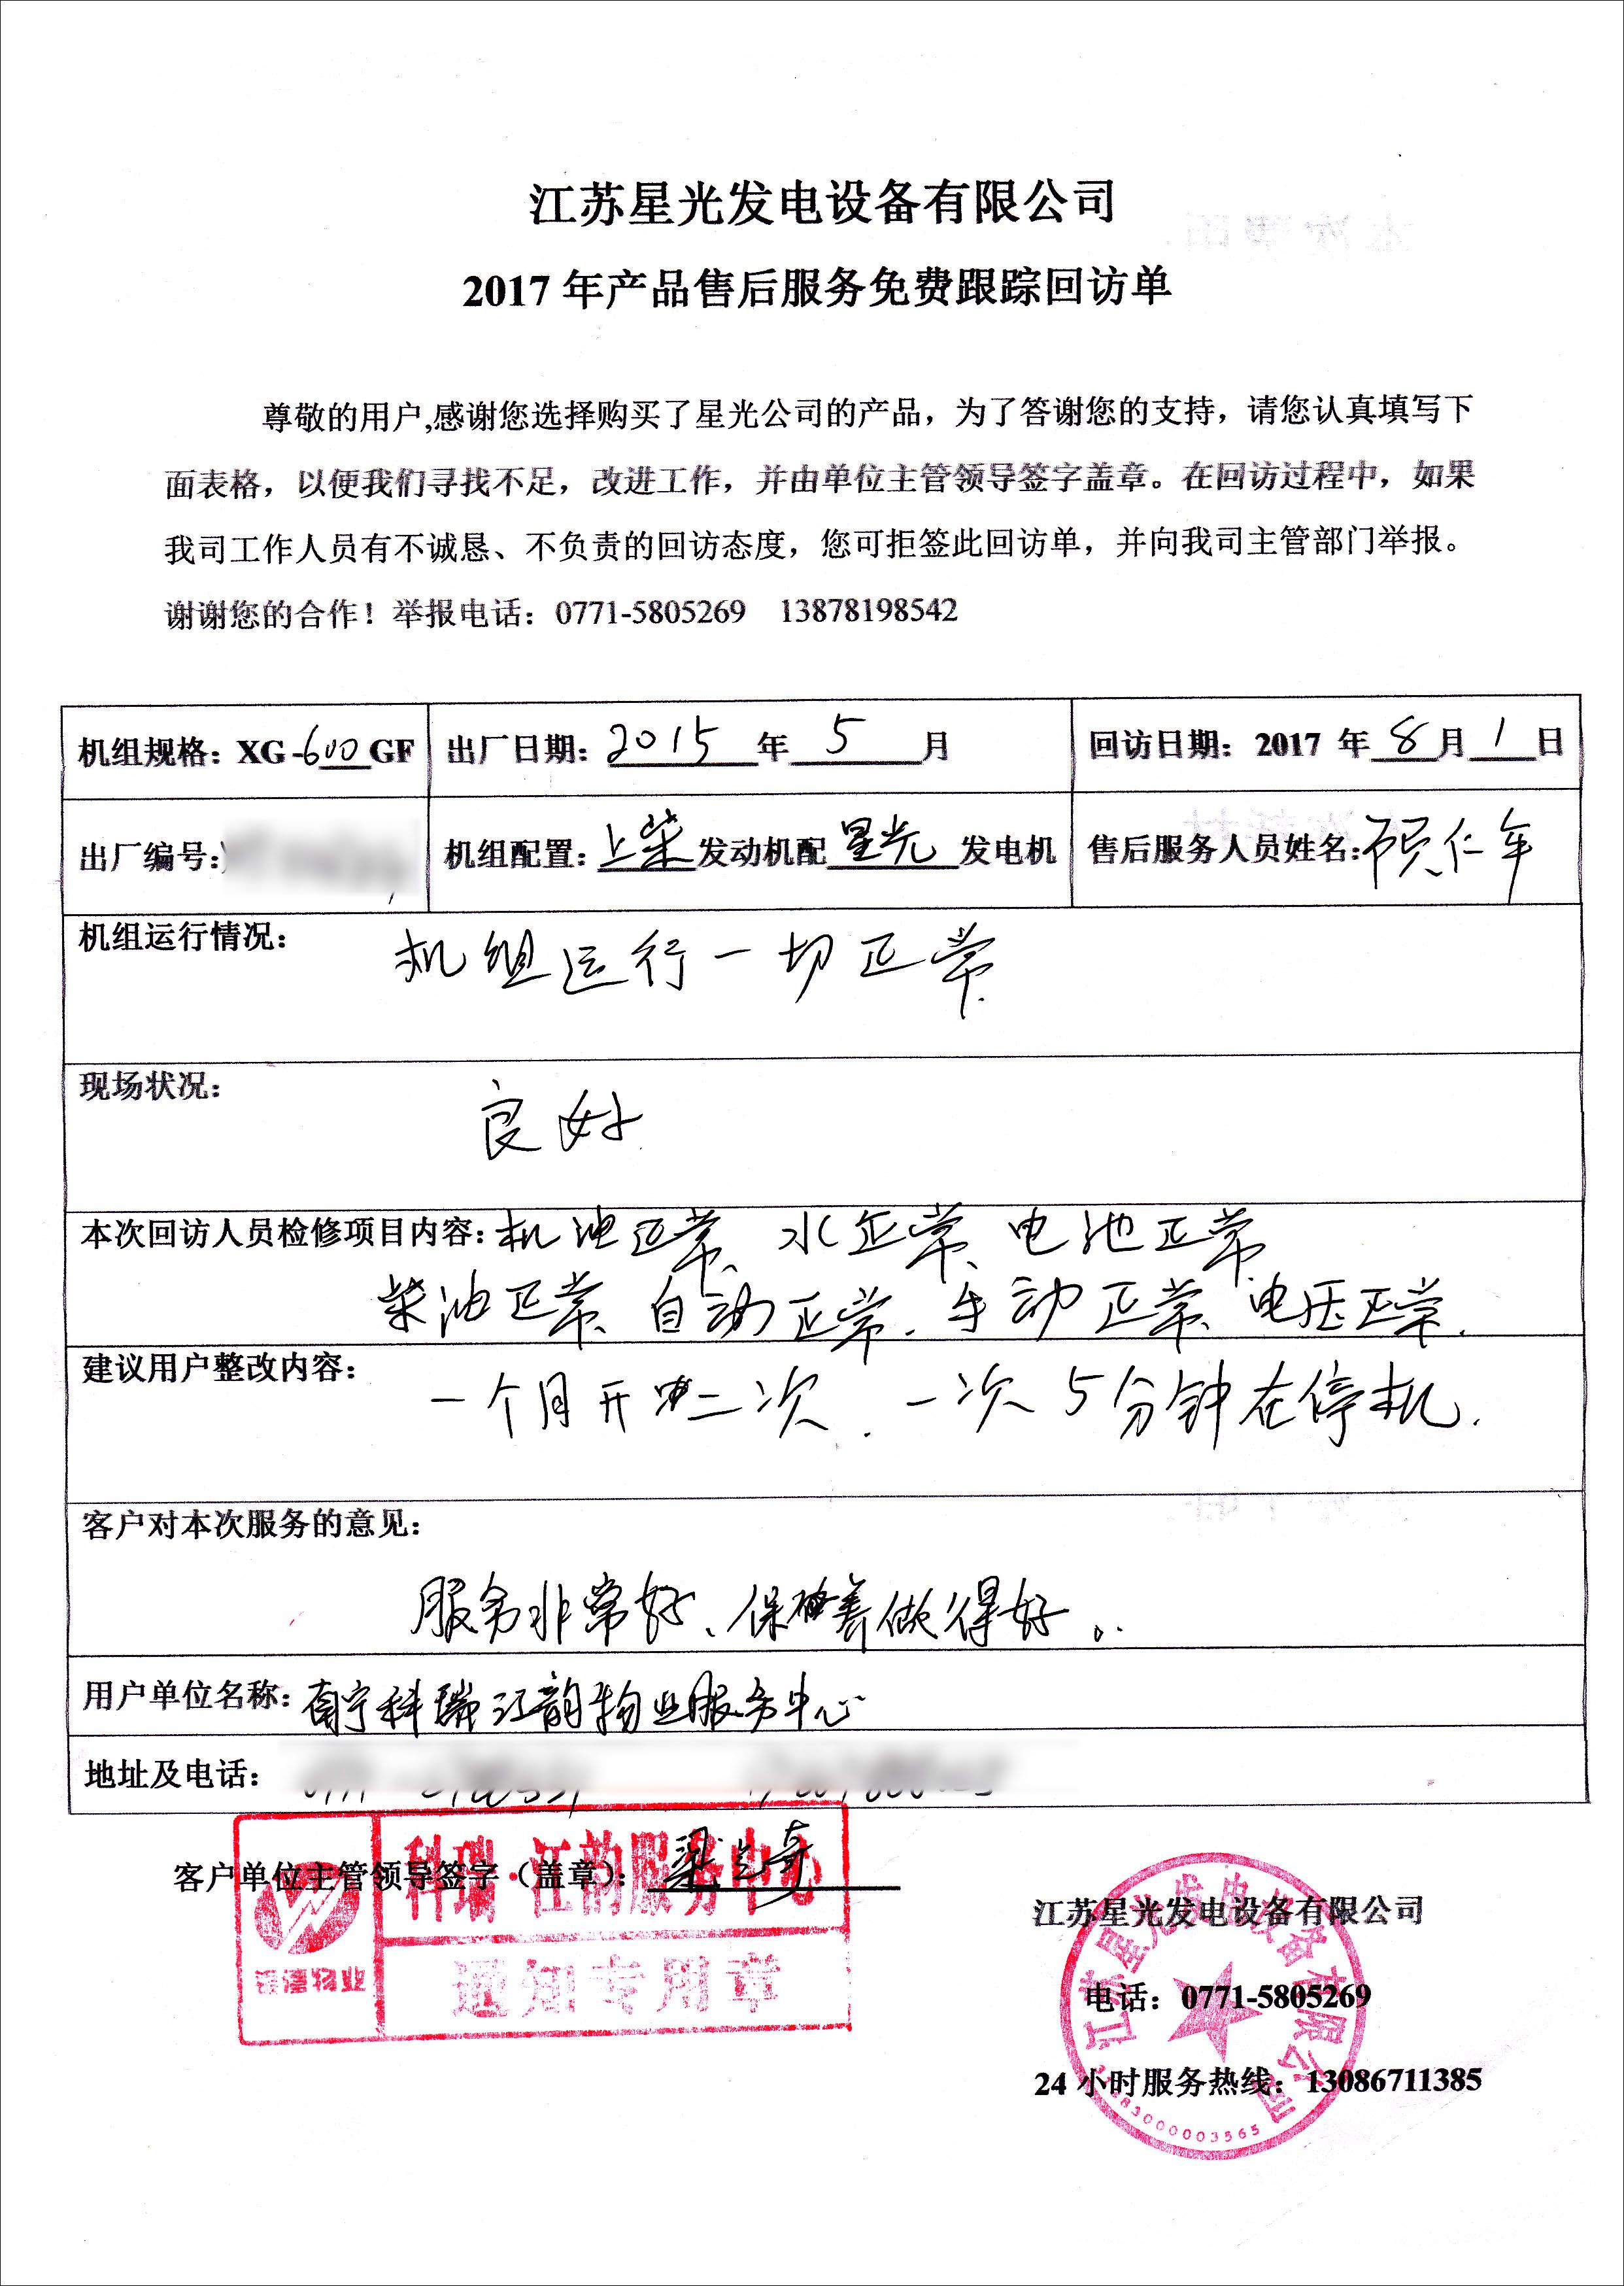 江苏星光发电设备有限公司
2017 年产品售后服务免费跟踪回访单
尊敬的用户,感谢您选择购买了星光公司的产品，为了答谢您的支持，请您认真填写下
面表格，以便我们寻找不足，改进工作，并由单位主管领导签字盖章。在回访过程中，如果
我司工作人员有不诚恳、不负责的回访态度，您可拒签此回访单，并向我司主管部门举报。
谢谢您的合作！举报电话：0771-5805269 13878198542
机组规格：XG-600GF 出厂日期：2015年5月 回访日期：2017 年8月1日
出厂编号: 机组配置：上柴发动机配星光发电机 售后服务人员姓名:顾仁年
机组运行情况：
机组运行一切正常
现场状况：
良好
本次回访人员检修项目内容：机油正常、水正常、电池正常
柴油正常、自动正常、手动正常、电压正常.
建议用户整改内容：
一个月开二次.一次5分钟在停机.
客户对本次服务的意见：
服务非常好、保养做得好。
用户单位名称：南宁科瑞江韵物业服务中心
地址及电话：
科瑞·江韵服务中心
客户单位主管领导签字（盖章）：
通知专用章
物业
江苏星光发电设备有限公司
电话：0771-5805269
24 小时服务热线：13086711385
江苏星光发电设备有限公司